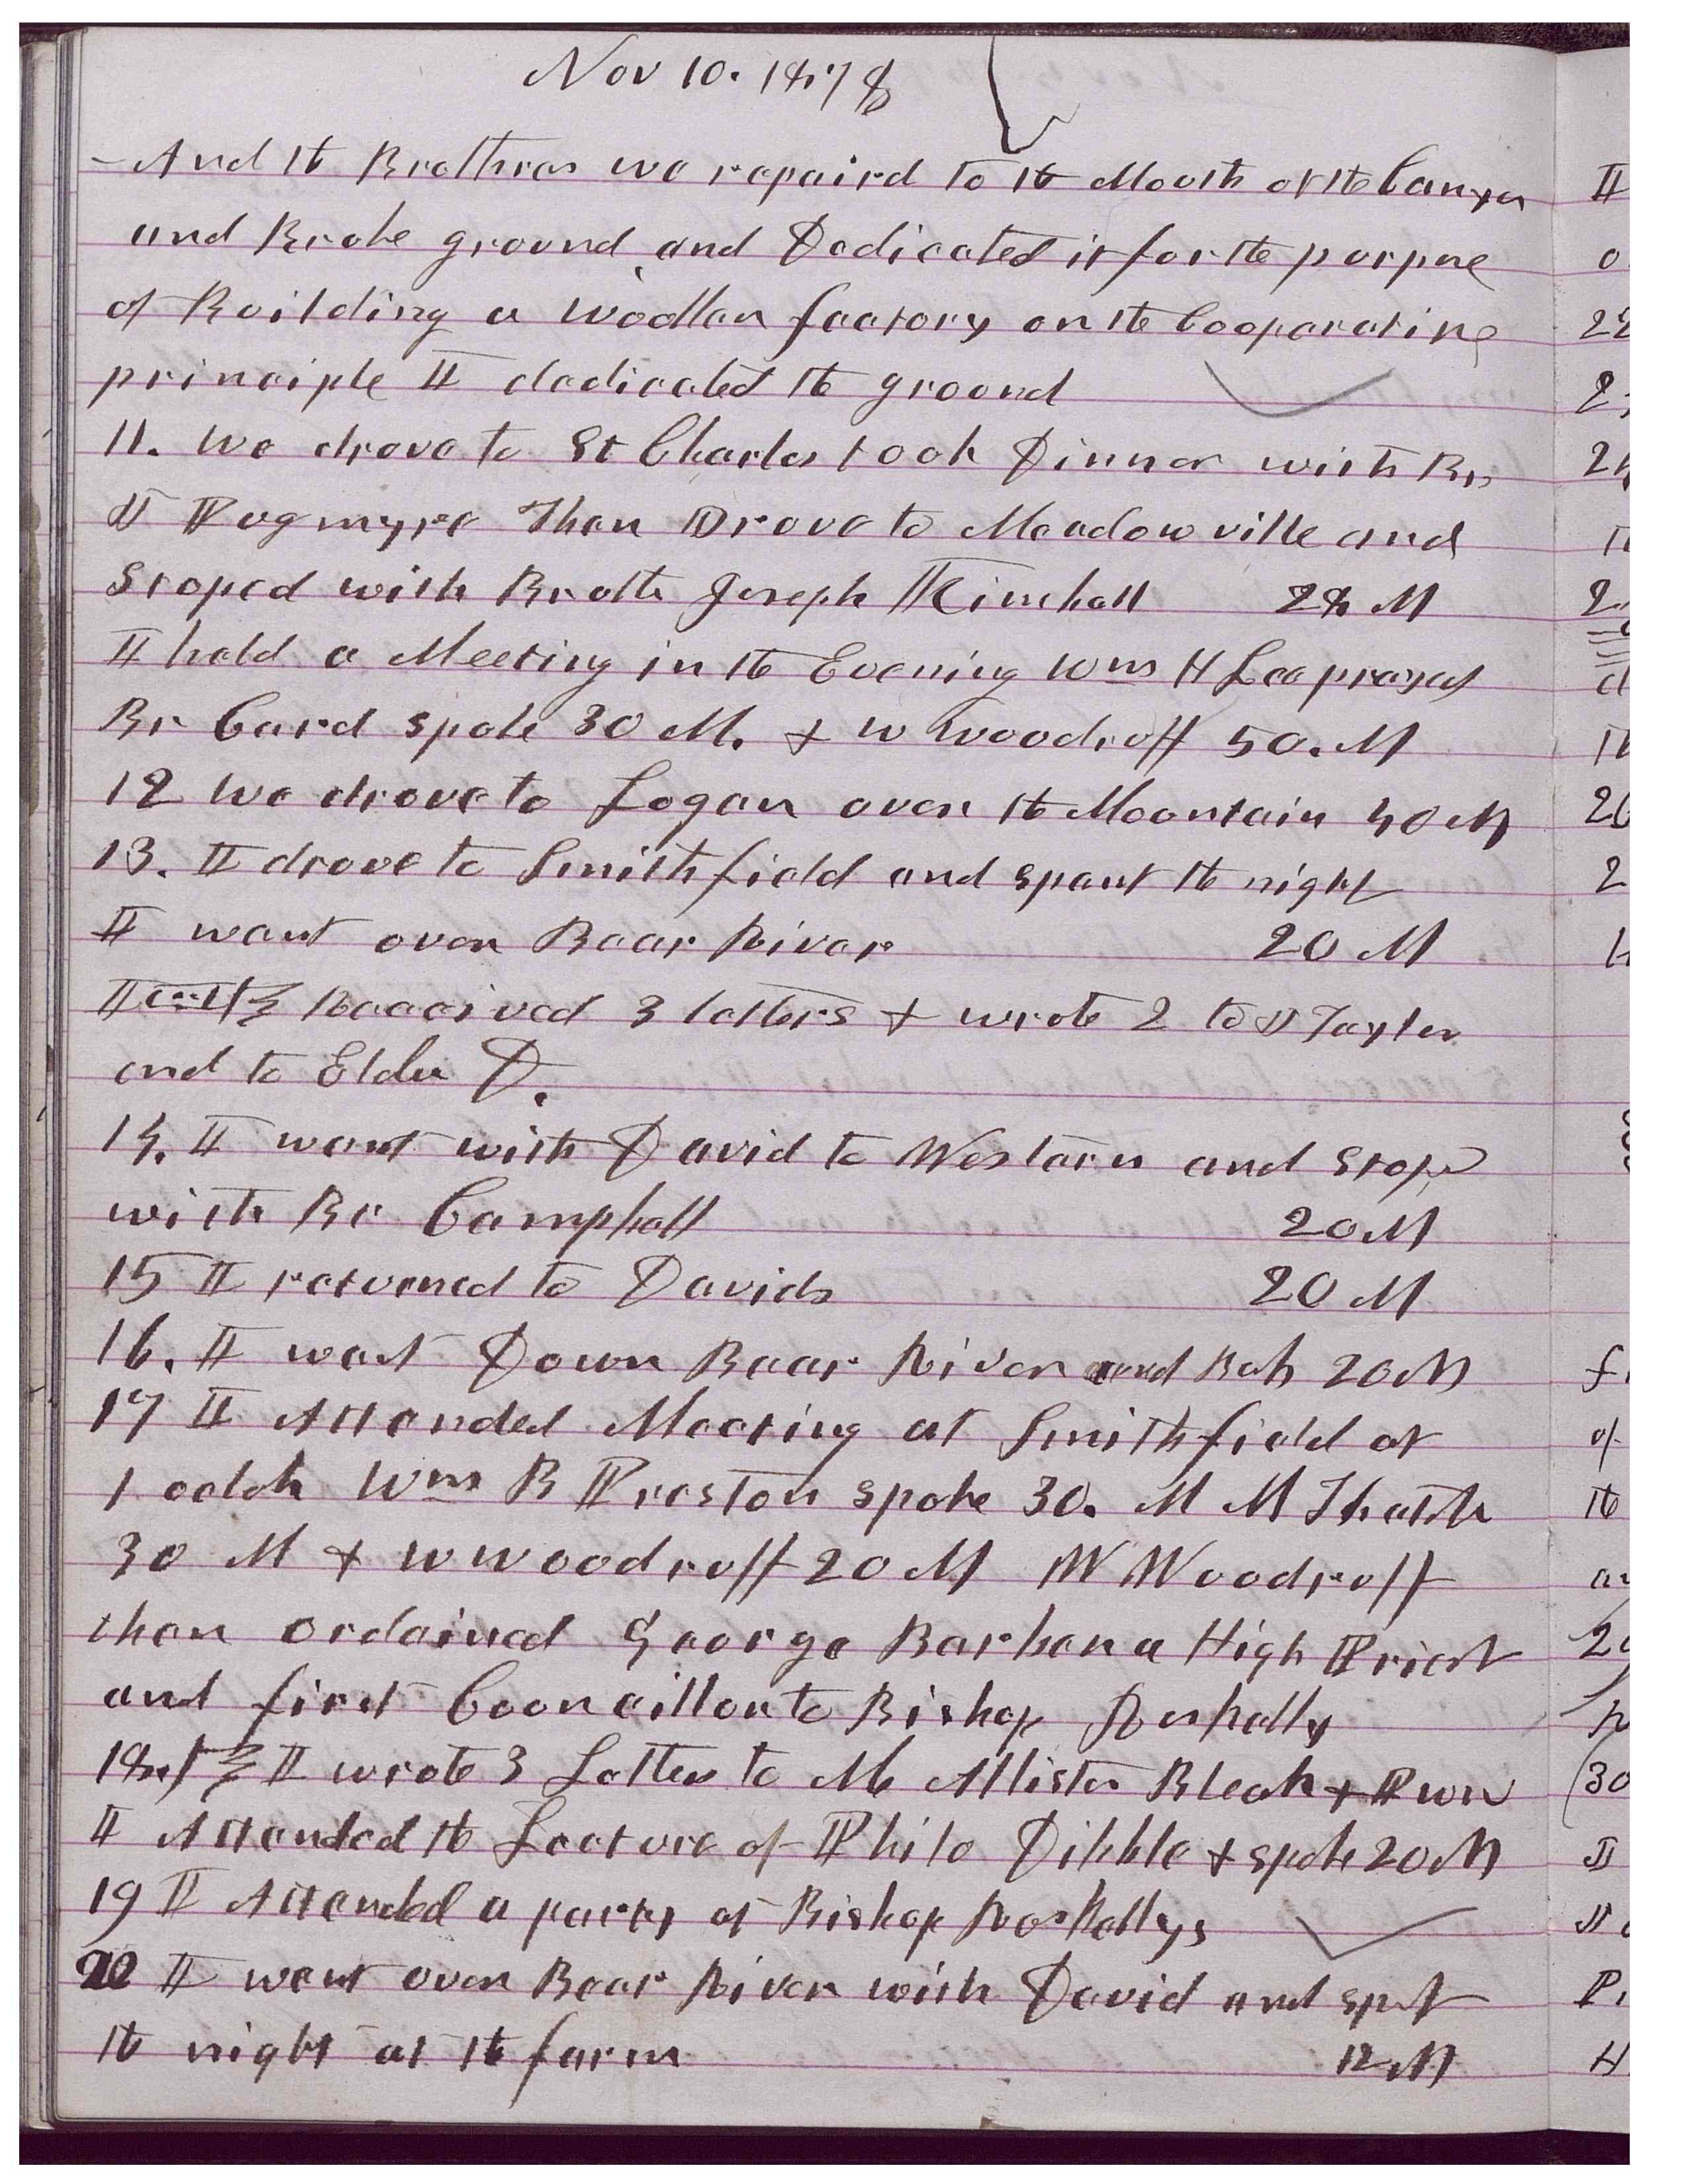 Nov 10. 1878
And the Brethren we repaird to the Mouth of the Canyon
and Broke ground and Dedicated it for the purpose
of Building a Woollen factory on the Cooperative
principle I dedicated the ground
11. We drove to St Charles took Dinner with Br
J Pugmyre Then Drove to Meadowville and
Stoped with Brothr Joseph Kimball 28 M
I held a Meeting in the Evening Wm H Lee prayed
Br Card spoke 30 M. & W Woodruff 50. M
12 We drove to Logan over the Mountain 40 M
13. I drove to Smithfield and spent the night
I went over Bear River 20 M
I Received 3 letters & wrote 2 to J Taylor
and to Elder D.
14. I went with David to Westorn and stop
with Br Campbell 20 M
15 I returned to Davids 20 M
16. I went Down Bear River and Bak 20 M
17 I Attended Meeting at Smithfield at
1 oclok Wm B Preston spoke 30. M M Thatch
30 M & W Woodruff 20 M W Woodruff
then ordained George Barber a High Priest
and first Councillor to Bishop Roskelly
18 I wrote 3 Letters to McAllister Bleak &
I Attended the Lecture of Philo Dibble & spoke 20 M
19 I Attended a party at Bishop Roskellys
20 I went over Bear River with David and spt
the night at the farm 12 M